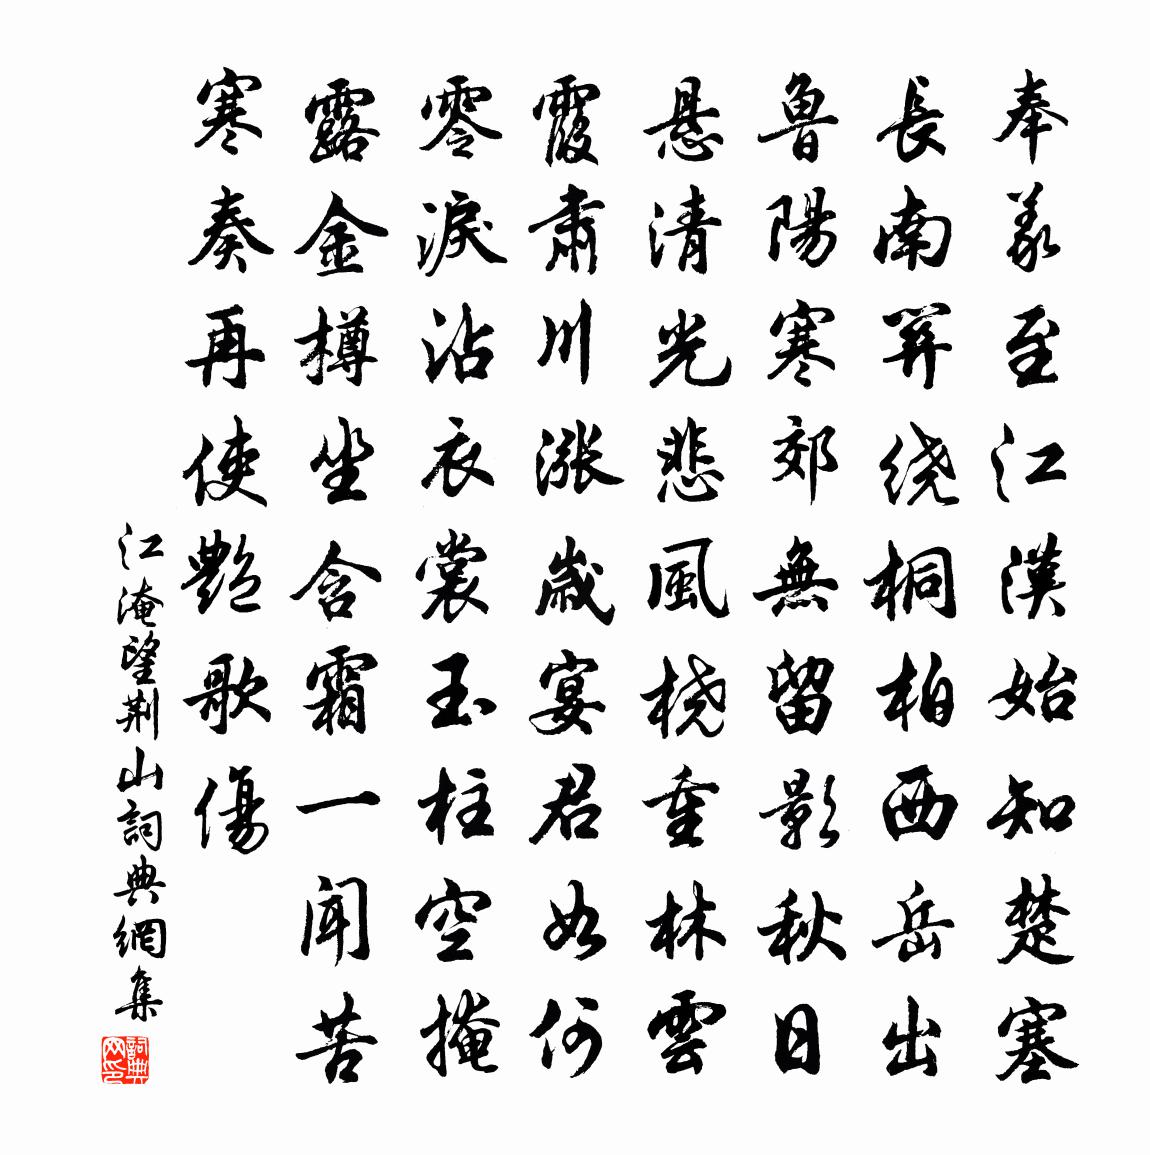 奉義至江漢始知楚塞
長南關绕桐柏西岳出
魯陽寒郊無留影秋日
悬清光悲風桡重林雲
霞肅川漲歲宴君如何
零淚沾衣裳玉柱空掩
露金樽坐含霜一闻苦
寒奏再使艷歌傷
江淹望荆山詞典網集
詞典网印